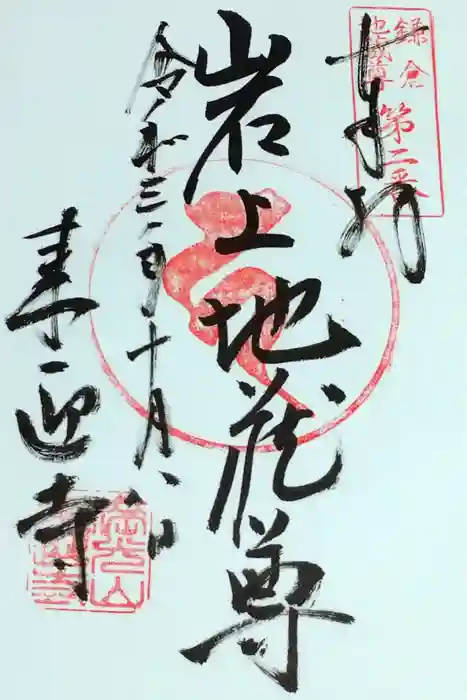 奉拝
鎌倉
第二番
岩上地蔵尊
令和三年十月八日
来迎寺